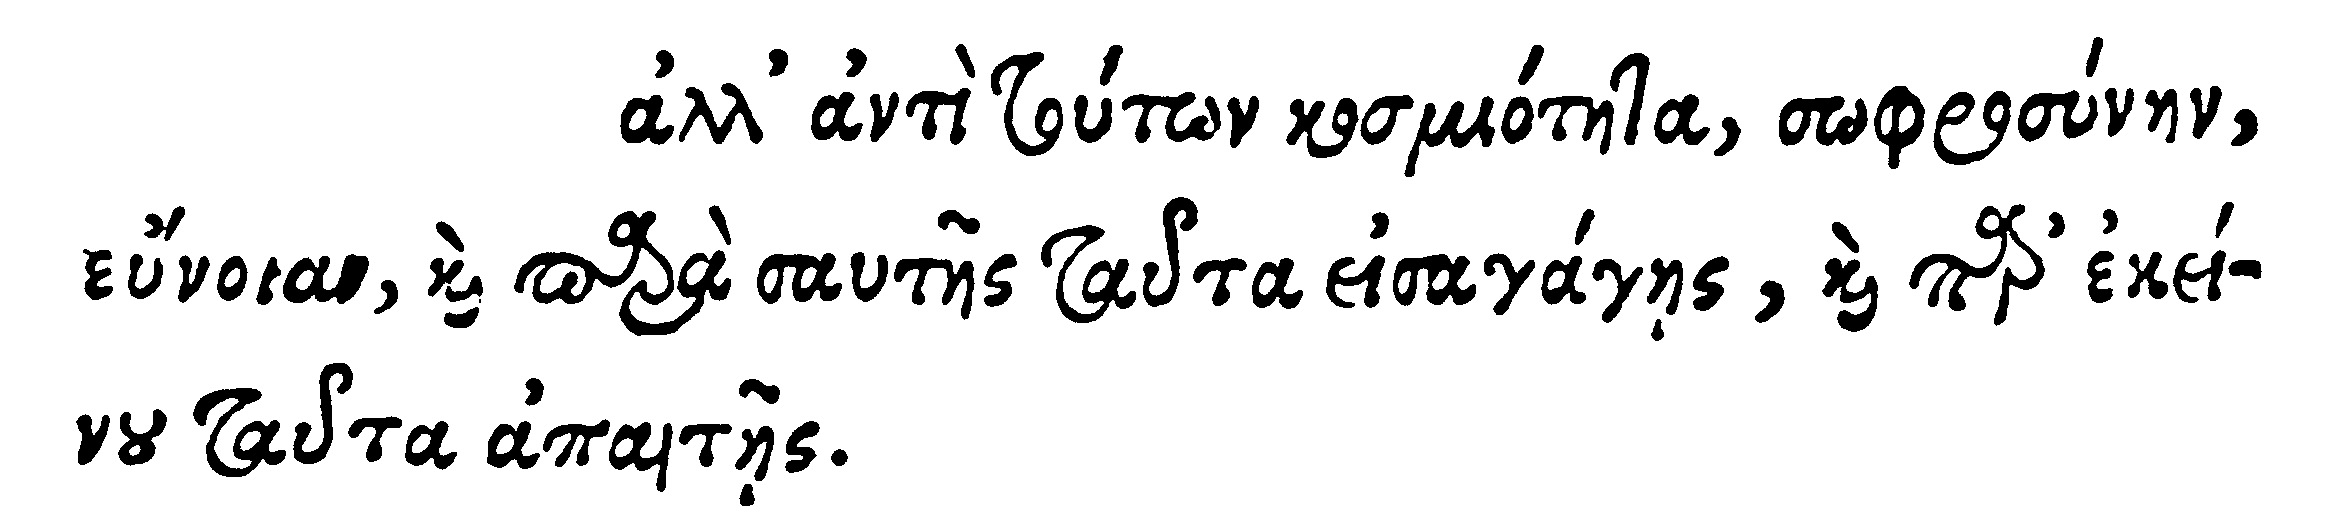 ἀλλ' ἀντὶ τούτων κοσμιότητα, σωφροσύνην,
εὔνοιαν, καὶ παρὰ σαυτῆς ταῦτα εἰσαγάγῃς, καὶ παρ' ἐκεί-
νου ταῦτα ἀπαιτῇς.